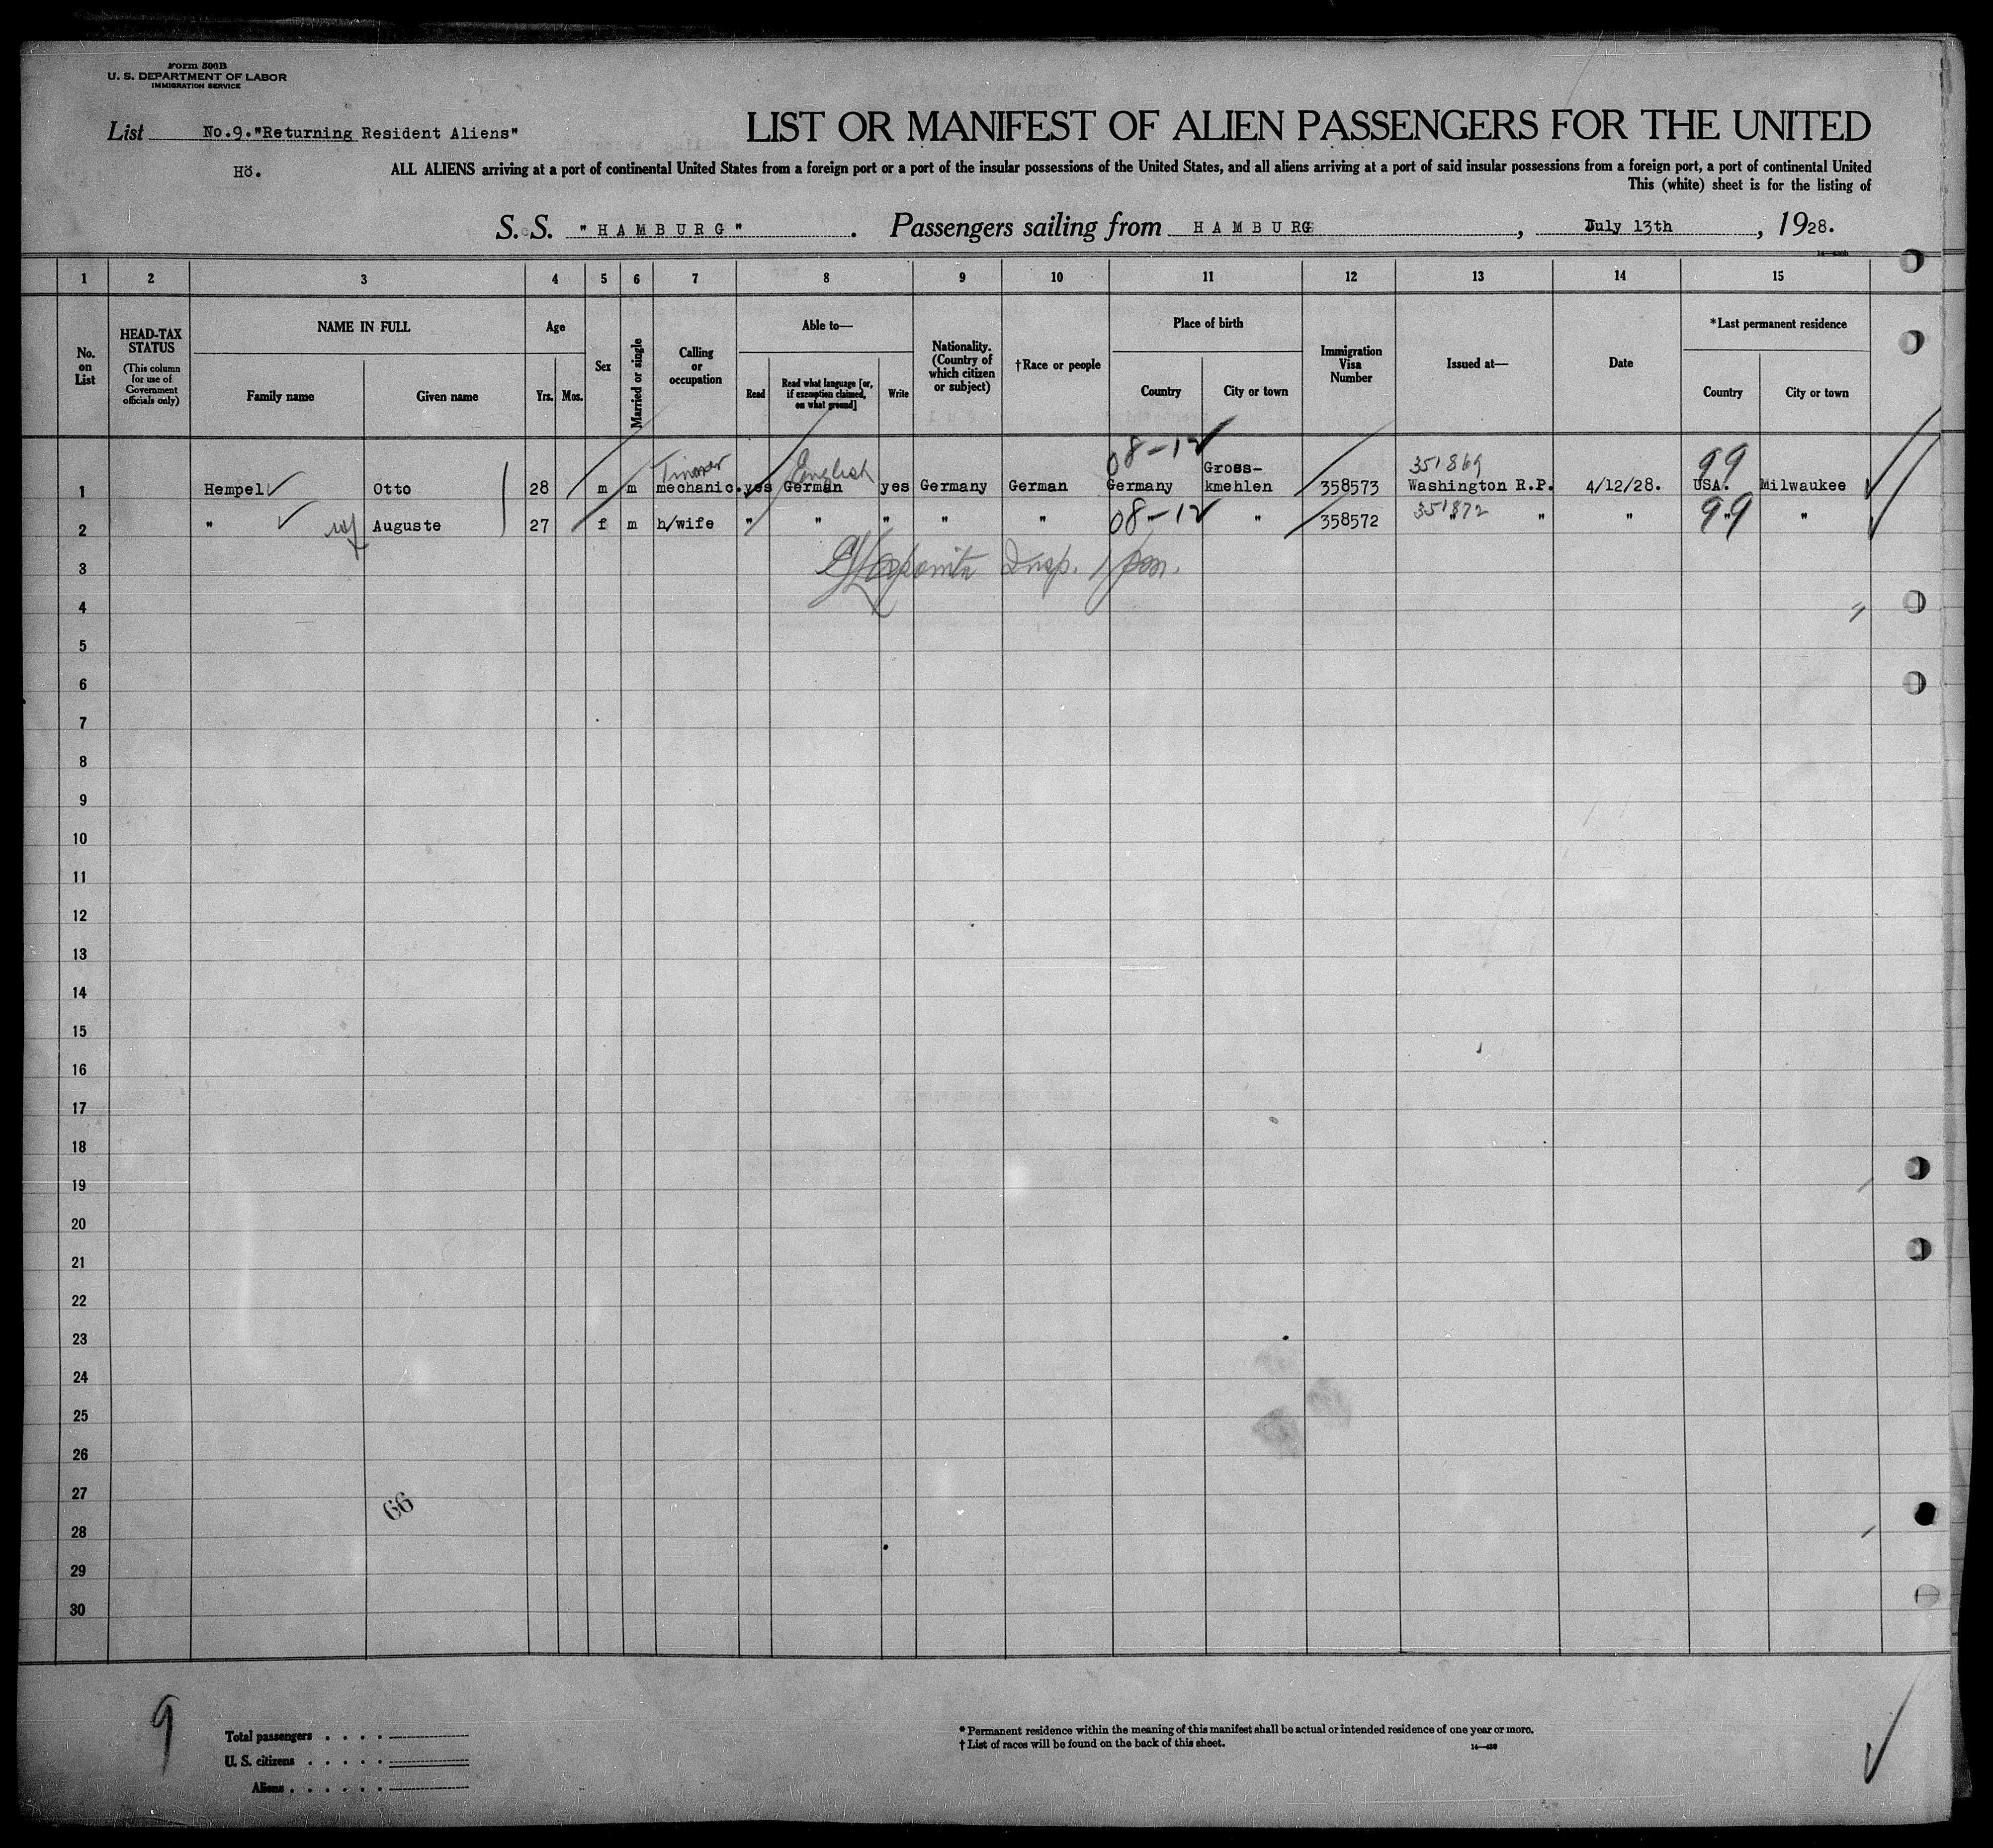 Form 500B
U. S. DEPARTMENT OF LABOR
IMMIGRATION SERVICE
List No.9."Returning Resident Aliens"
Hö.
LIST OR MANIFEST OF ALIEN PASSENGERS FOR THE UNITED
ALL ALIENS arriving at a port of continental United States from a foreign port or a port of the insular possessions of the United States, and all aliens arriving at a port of said insular possessions from a foreign port, a port of continental United
This (white) sheet is for the listing of
S. S. "HAMBURG". Passengers sailing from HAMBURG, July 13th, 1928.
1 2 3 4 5 6 7 8 9 10 11 12 13 14 15
No. on List
HEAD-TAX STATUS
(This column for use of Government officials only)
NAME IN FULL
Family name Given name
Age
Yrs. Mos.
Sex
Married or single
Calling or occupation
Able to—
Read
Read what language [or, if exemption claimed, on what ground]
Write
Nationality. (Country of which citizen or subject)
†Race or people
Place of birth
Country City or town
Immigration Visa Number
Issued at—
Date
*Last permanent residence
Country City or town
08-12 351869 99
English Gross-
1 Hempel Otto 28 m m mechanic. yes German yes Germany German Germany kmehlen 358573 Washington R.P. 4/12/28. USA. Milwaukee
08-12 351872 99
2 " wf Auguste 27 f m h/wife " " " " " " " 358572 " " " " "
3
Insp.
4
5
6
7
8
9
10
11
12
13
14
15
16
17
18
19
20
21
22
23
24
25
26
27
66
28
29
30
9
Total passengers . . . .
U. S. citizens . . . . .
Aliens . . . . . .
* Permanent residence within the meaning of this manifest shall be actual or intended residence of one year or more.
† List of races will be found on the back of this sheet.